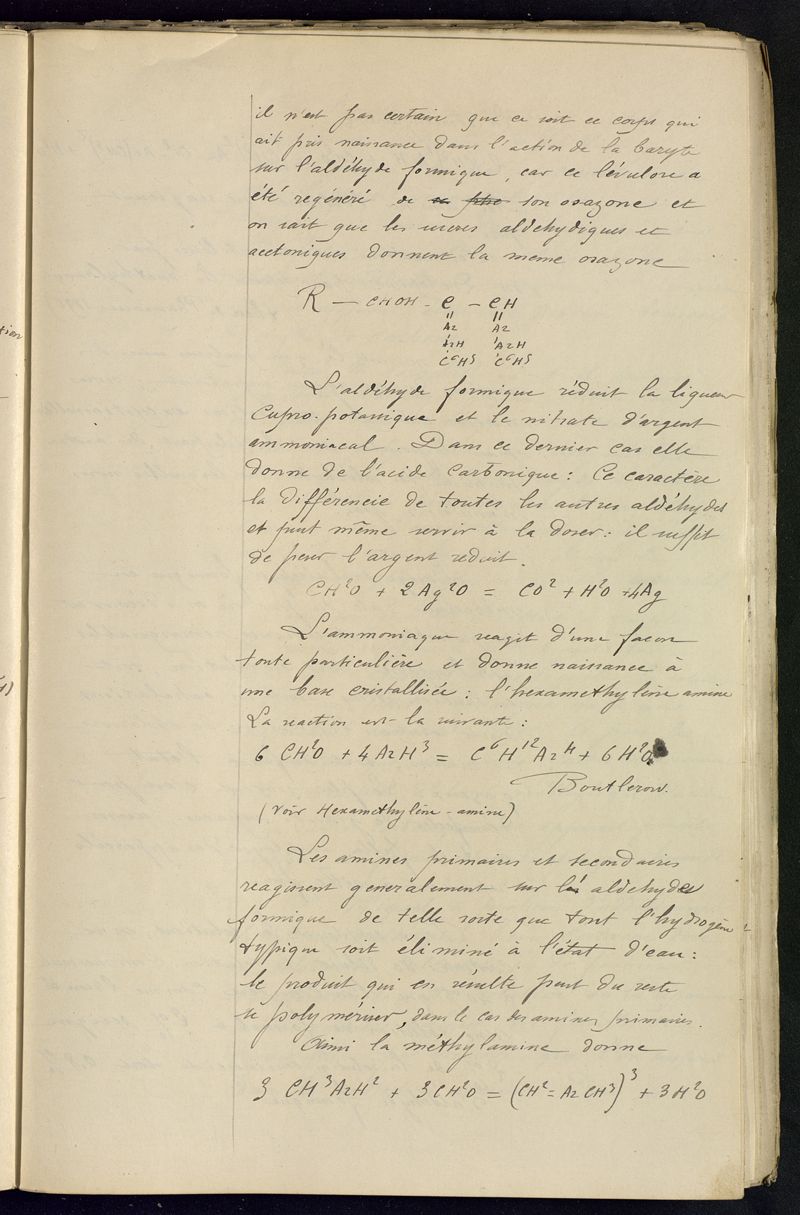 il n'est pas certain que ce soit ce corps qui
ait pris naissance dans l'action de la baryte
sur l'aldéhyde formique, car ce lévulose a
été regénéré de son osazone et
on sait que les sucres aldehydiques et
acetoniques donnent la meme osazone
R — CHOH - C — CH
" "
Az Az
AzH AzH
C⁶H⁵ C⁶H⁵
L'aldéhyde formique réduit la liqueur
Cupro-potassique et le nitrate d'argent
ammoniacal. Dans ce dernier cas elle
donne de l'acide Carbonique : Ce caractère
la différencie de toutes les autres aldéhydes
et peut même servir à la doser : il suffit
de peser l'argent reduit.
CH²O + 2Ag²O = CO² + H²O + 4Ag
L'ammoniaque reagit d'une facon
toute particulière et donne naissance à
une base cristallisée : l'hexamethylène amine
La reaction est la suivante :
6 CH²O + 4AzH³ = C⁶H¹²Az⁴ + 6H²O
Boutlerow.
(Voir Hexamethylène-amine)
Les amines primaires et secondaires
reagissent generalement sur les aldehydes
formique de telle sorte que tout l'hydrogène
typique soit éliminé à l'état d'eau :
le produit qui en résulte peut du reste
se polymériser, dans le cas des amines primaires.
Ainsi la méthylamine donne
3 CH³AzH² + 3CH²O = (CH² = AzCH³)³ + 3H²O